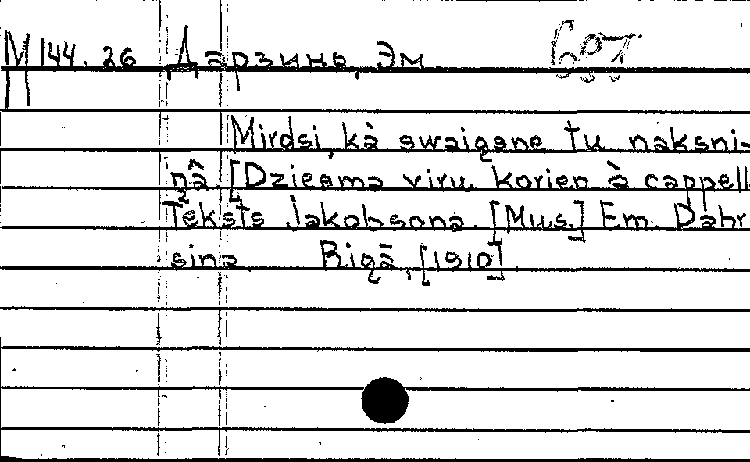 М 144.26 Дарзинь, Эм.
Mirdsi, kà swaigsne tu naksni-
ņā. [Dziesma viru korien à cappell
Teksts Jakobsona. [Mus.] Em. Dahr
sina Rigā, [1910]